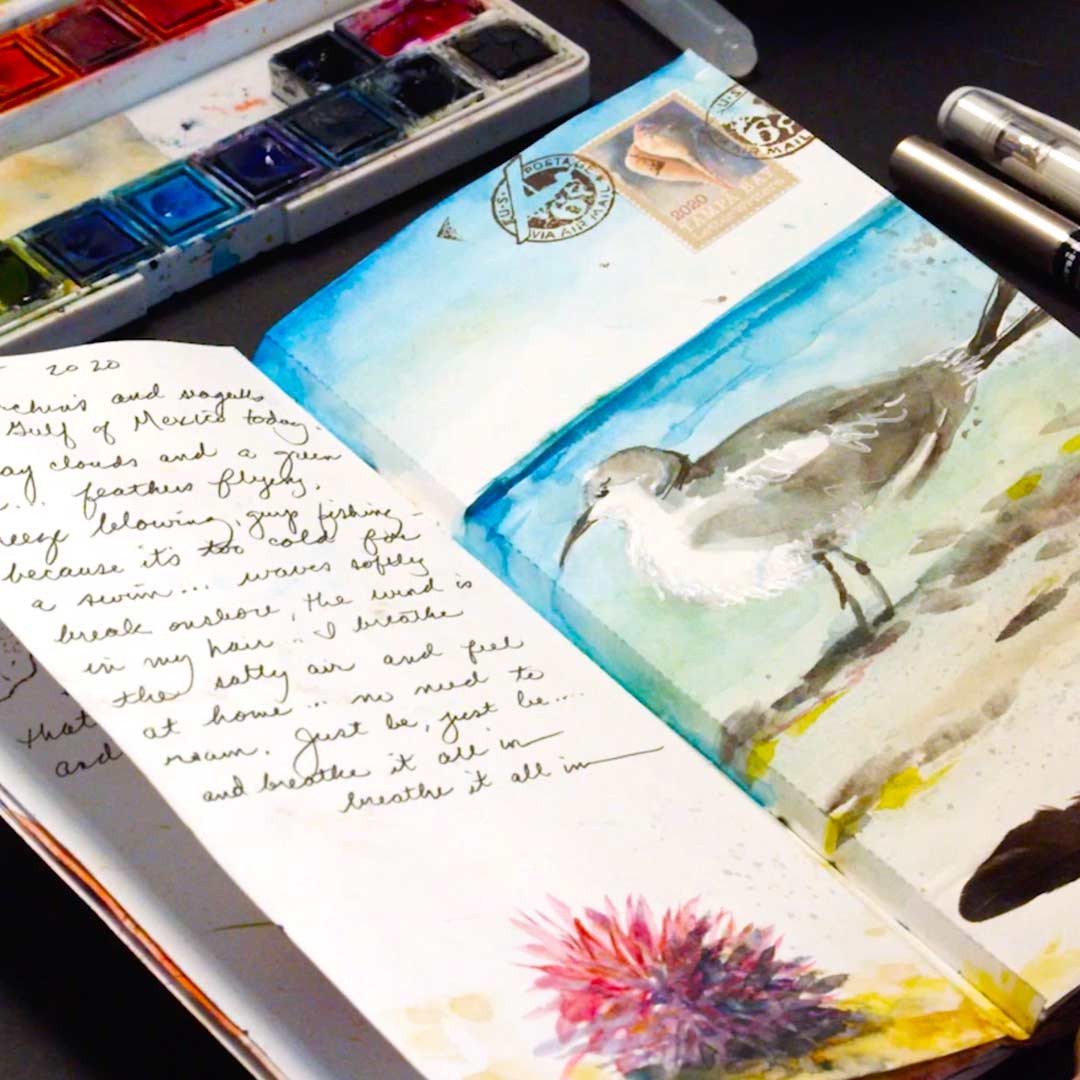 U.S. POSTAGE
VIA AIR MAIL
U.S.
AIR MAIL
2020
TAMPA BAY
2020
and seagulls
Gulf of Mexico today.
clouds and a green
... feathers flying,
blowing, guys fishing -
because it's too cold for
a swim... waves softly
break onshore, the wind is
in my hair... I breathe
the salty air and feel
at home... no need to
roam. Just be, just be....
and breathe it all in
breathe it all in
that
and